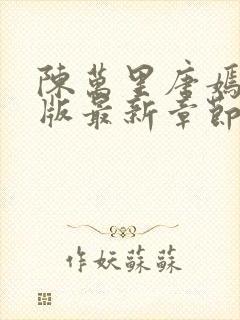 陳萬里唐嫣
版最新章節
作妖蘇蘇